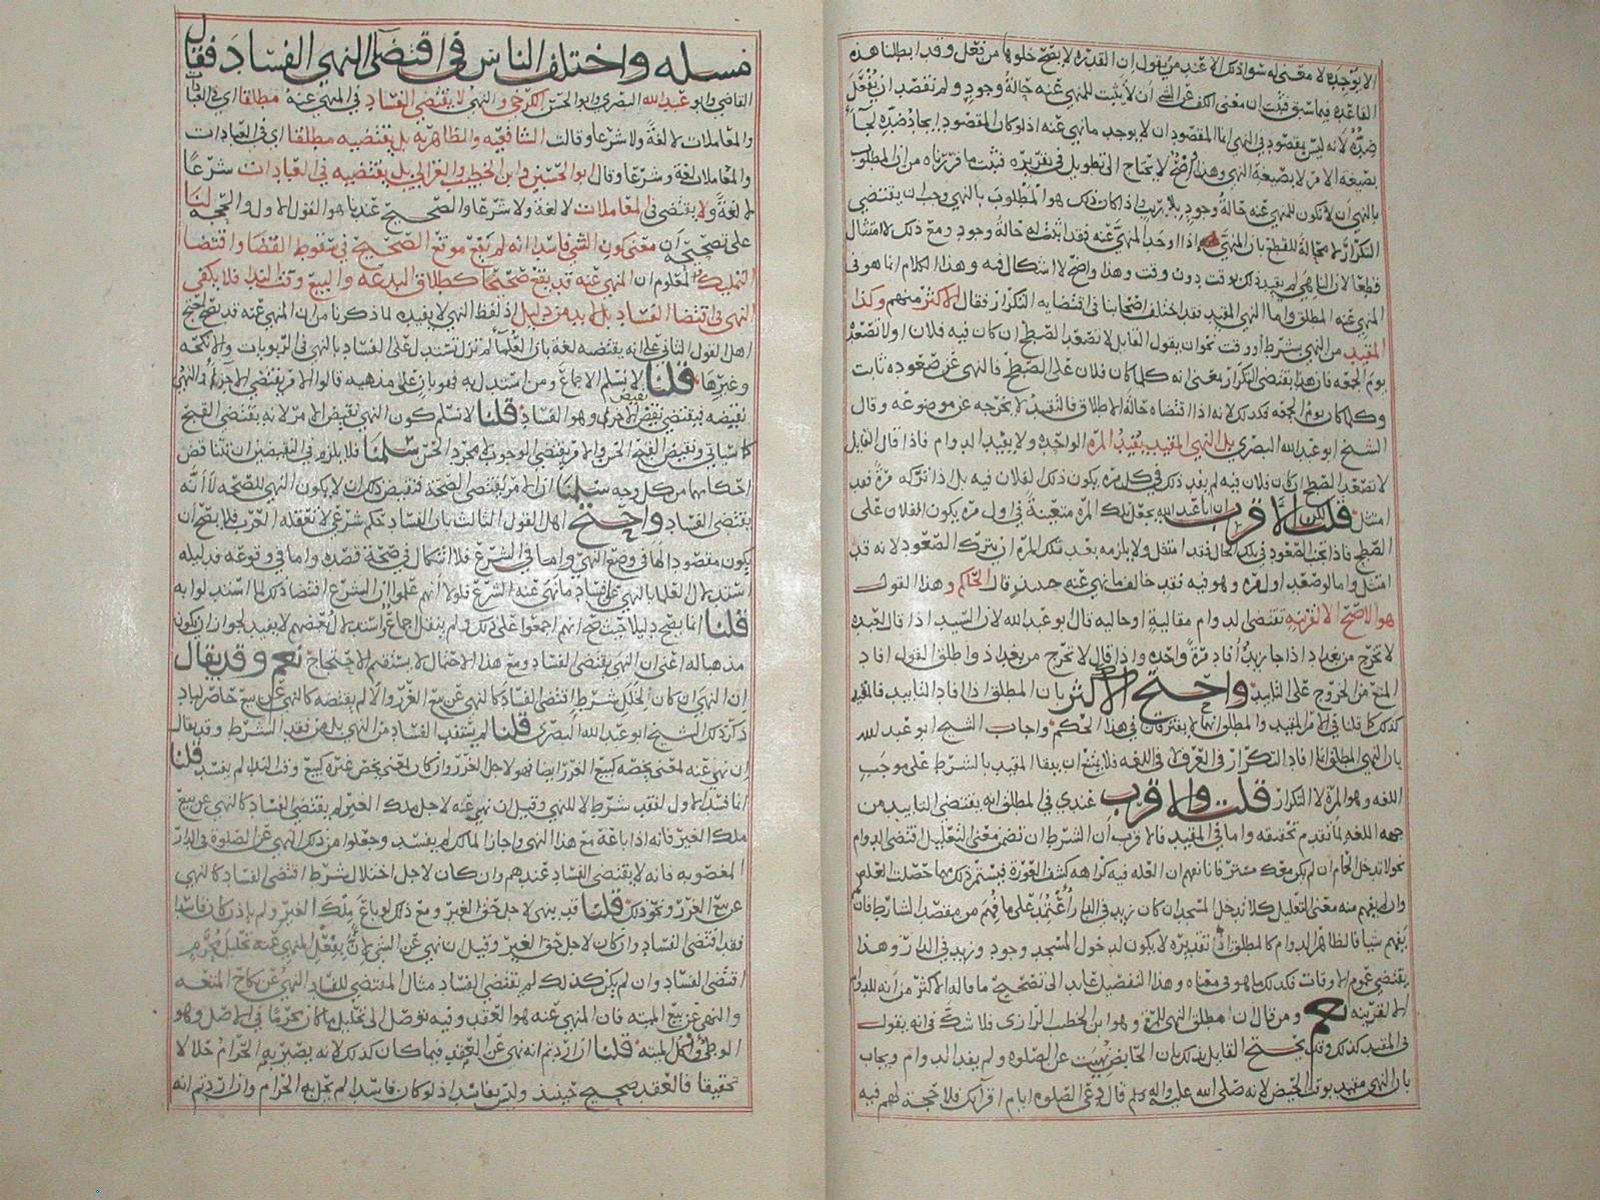 الا يوجده لا معنى له سوا ذلك الا عند من يقول ان القدره لا يصح خلوها من فعل وقد ابطلنا هذه
القاعده فيما سبق فثبت ان معنى الكف عن الشي ان لا يثبت للمنهي عنه حالة وجود ولم نقصد ان يفعل
ضده لانه ليس بمقصود في النهي انما المقصود ان لا يوجد ما نهي عنه اذ لو كان المقصود ايجاد ضده لجا
بصيغة الامر لا بصيغة النهي وهذا واضح لا يحتاج الى تطويل في تقريره فثبت ما قررناه من ان المطلوب
بالنهي ان لا يكون للمنهي عنه حالة وجود بلا ريب واذا كان ذلك هو المطلوب بالنهي وجب ان يقتضي
التكرار لا محالة للقطع بان المنهي اذا اوجد المنهي عنه فقد اثبت له حالة وجود ومع ذلك لا امتثال
قطعا لان الناهي لم يقيد ذلك بوقت دون وقت وهذا واضح لا اشكال فيه وهذا الكلام انما هو في
المنهي عنه المطلق واما النهي المقيد فقد اختلف اصحابنا في اقتضايه التكرار فقال الاكثر منهم وكذا
المقيد من النهي بشرط أو وقت نحو ان يقول القايل لا تصعد السطح ان كان فيه فلان او لا تصعد
يوم الجمعه فان هذا يقتضي التكرار بمعنى انه كلما كان فلان على السطح فالنهي عن صعوده ثابت
وكلما كان يوم الجمعه فكذلك لانه اذا اقتضاه حالة الاطلاق فالتقييد لا يخرجه عن موضوعه وقال
الشيخ ابو عبد الله البصري بل النهي المقيد يفيد المره الواحده ولا يفيد الدوام فاذا قال القايل
لا تصعد السطح ان كان فلان فيه لم يفد ذلك في كل مره يكون ذلك لفلان فيه بل اذا تركه مرة فقد
امتثل قلت الا قرب ان ابا عبد الله يجعل تلك المره متعينة في اول مره يكون الفلان على
السطح فاذا تجنب الصعود في تلك الحال فقد امتثل ولا يلزمه بعد تلك المره ان يترك الصعود لانه قد
امتثل واما لو صعد اول مره وهو فيه فقد خالف ما نهي عنه حينئذ وقال الحاكم وهذا القول
هو الاصح الا لقرينه تقتضي لدوام مقالية او حاليه قال ابو عبد الله لان السيد اذا قال لعبده
لا تخرج من بغداد اذا جا زيد أفاد مرة واحده واذا قال لا تخرج من بغداد واطلق القول افاد
المنع من الخروج على التابيد واحتج الاكثر بان المطلق اذا افاد التابيد فالمقيد
كذلك كما قلنا في الامر المقيد والمطلق انهما لا يفترقان في هذا الحكم واجاب الشيخ ابو عبد الله
بان النهي المطلق انما افاد التكرار في العرف لا في اللغه فلا يمتنع ان يبقا المقيد بالشرط على موجب
اللغه وهو المرة لا التكرار قلت والاقرب عندي في المطلق انه يقتضي التابيد من
جهه اللغه لما تقدم تحقيقه واما في المقيد فالاقرب ان الشرط ان تضمن معنى التعليل اقتضى الدوام
نحو لا تدخل الحمام ان لم يكن معك ميتزر فانا نفهم ان العله فيه كراهه كشف العورة فيستمر ذلك مهما حصلت العله
وان لم يفهم منه معنى التعليل كلا تدخل المسجد ان كان زيد في الدار
يفهم شيا فالظاهر الدوام كالمطلق اذ تقديره لا يكون لدخول المسجد وجود وزيد في الدار وهذا
يقتضي عموم الاوقات فكذلك ما هو في معناه وهذا التفصيل عايد الى تصحيح ما قاله الاكثر من انه للدوام
الا لقرينه نعم ومن قال ان مطلق النهي للمرة وهو ابن الخطيب الرازي فلا شك في انه يقول
في المقيد كذلك وقد يحتج القايل بذلك بان الحايض نهيت عن الصلوه ولم يفد الدوام ويجاب
بان النهي مقيد بوقت الحيض لانه صلى الله عليه واله وسلم قال دعي الصلوه ايام اقرائك فلا حجة لهم فيه
مسله واختلف الناس في اقتضا النهي الفساد فقال
القاضي وابو عبد الله البصري وابو الحسن الكرخي والنهي لا يقتضي الفساد في المنهي عنه مطلقا اي في العبادات
والمعاملات لا لغة ولا شرعا وقالت الشافعيه والظاهريه بل يقتضيه مطلقا اي في العبادات
والمعاملات لغة وشرعا وقال ابو الحسين وابن الخطيب والغزالي بل يقتضيه في العبادات شرعا
لا لغة ولا يقتضي في المعاملات لا لغة ولا شرعا والصحيح عندنا هو القول الاول والحجه لنا
على تصحيحه ان معنى كون الشي فاسدا انه لم يقع موقع الصحيح في سقوط القضا واقتضا
التمليك والمعلوم ان المنهي عنه قد يقع صحيحا كطلاق البدعه والبيع وقت الندا فلا يكفي
النهي في اقتضا الفساد بل لا بد من دليل اذ لفظ النهي لا يفيده لما ذكرنا من ان المنهي عنه قد يصح احتج
اهل القول الثاني على انه يقتضيه لغة بان العلما لم تزل تستدل على الفساد بالنهي في الربويات والانكحه
وغيرها قلنا لا نسلم الاجماع ومن استدل به فهو بان على مذهبه قالوا الامر يقتضي الاجزا والنهي
نقيضه فيقتضي نقيض الاجزا وهو الفساد قلنا لا نسلم كون النهي نقيض الامر لانه يقتضي القبح
كما سياتي ونقيض القبح الحسن والامر يقتضي الوجوب لا مجرد الحسن سلمنا فلا يلزم في النقيضين ان تتناقض
احكامهما من كل وجه سلمنا ان الامر يقتضي الصحة فنقيض ذلك ان لا يكون النهي للصحه لا أنه
يقتضي الفساد واحتج اهل القول الثالث بان الفساد حكم شرعي لا تعقله العرب فلا يصح ان
يكون مقصودا لها في وضع النهي واما في الشرع فلا اشكال في صحة قصده واما في وقوعه فدليله
استدلال العلما بالنهي على فساد ما نهى عنه الشرع فلولا انهم علموا ان الشرع اقتضا ذلك لما استدلوا به
قلنا انما يصح دليلا حيث صح انهم اجمعوا على ذلك ولم ينقل اجماع واستدلال بعضهم لا يفيد لجواز ان يكون
مذهبا له اعني ان النهي يقتضي الفساد ومع هذا الاحتمال لا يستقيم الاحتجاج نعم وقد يقال
ان النهي ان كان لخلل شرط اقتضى الفساد كالنهي عن بيع الغرر والا لم يقتضه كالنهي عن بيع حاضر لباد
ذكر ذلك الشيخ ابو عبد الله البصري قلنا لم يستفد الفساد من النهي بل من فقد الشرط وقد يقال
ان نهي عنه لمعنى يخصه كبيع الغرر ايضا فهو لاجل الغرر وان كان لمعنى يخص غيره كبيع وقت الندا لم يفسد قلنا
انما فسد الاول لفقد شرط لا للنهي وقيل ان نهي عنه لاجل ملك الغير لم يقتضي الفساد كالنهي عن بيع
ملك الغير فانه اذا باعه مع هذا النهي واجاز المالك لم يفسد وجعلوا من ذلك النهي عن الصلوة في الدار
المغصوبه فانه لا يقتضي الفساد عندهم وان كان لاجل اختلال شرط اقتضى الفساد كالنهي
عن بيع الغرر ونحو ذلك قلنا قد ينهى لاجل حق الغير ومع ذلك لو باع ملك الغير ولم ياذن كان فاسدا
فقد اقتضى الفساد وان كان لاجل حق الغير وقيل ان نهي عن الشي لان بفعل المنهي عنه تحليل محرم
اقتضى الفساد وان لم يكن كذلك لم يقتضي الفساد مثال المقتضي للفساد النهي عن نكاح المتعه
والنهي عن بيع الميته فان المنهي عنه هو العقد وفيه توصل الى تحليل ما كان محرما في الاصل وهو
الوطؤ واكل الميته قلنا ان اردتم انه نهى عن العقد فيما كان كذلك لانه يصير به الحرام حلالا
تحقيقا فالعقد صحيح حينئذ وليس بفاسد اذ لو كان فاسدا لم تحل به الحرام وان اردتم انه